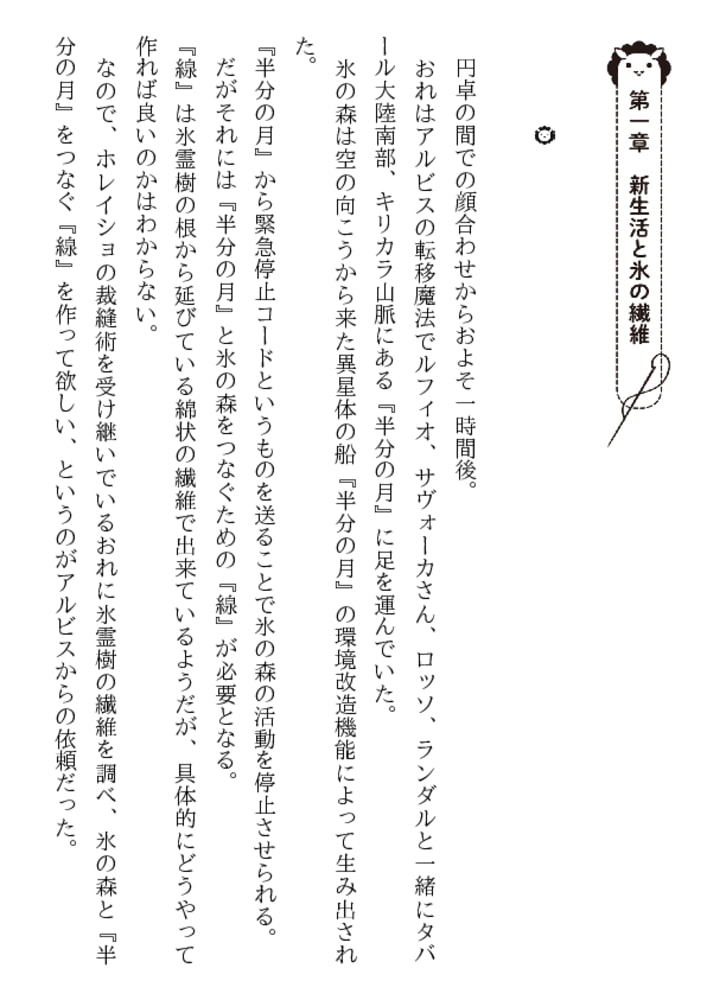 第一章　新生活と氷の繊維
円卓の間での顔合わせからおよそ一時間後。
おれはアルビスの転移魔法でルフィオ、サヴォーカさん、ロッソ、ランダルと一緒にタバ
ール大陸南部、キリカラ山脈にある『半分の月』に足を運んでいた。
氷の森は空の向こうから来た異星体の船『半分の月』の環境改造機能によって生み出され
た。
『半分の月』から緊急停止コードというものを送ることで氷の森の活動を停止させられる。
だがそれには『半分の月』と氷の森をつなぐための『線』が必要となる。
『線』は氷霊樹の根から延びている綿状の繊維で出来ているようだが、具体的にどうやって
作れば良いのかはわからない。
なので、ホレイショの裁縫術を受け継いでいるおれに氷霊樹の繊維を調べ、氷の森と『半
分の月』をつなぐ『線』を作って欲しい、というのがアルビスからの依頼だった。